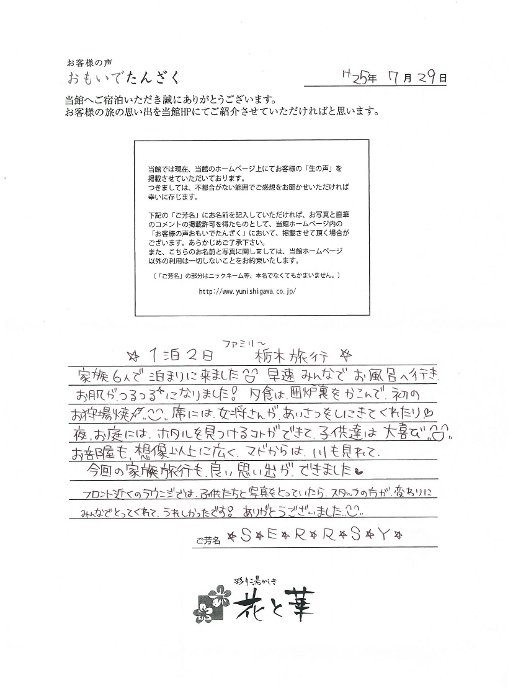 お客様の声
おもいでたんざく
H25年 7月29日
当館へご宿泊いただき誠にありがとうございます。
お客様の旅の思い出を当館HPにてご紹介させていただければと思います。
当館では現在、当館のホームページ上にてお客様の「生の声」を
掲載させていただいております。
つきましては、不都合がない範囲でご感想をお聞かせいただければ
幸いに存じます。
下記の「ご芳名」にお名前を記入していただければ、お写真と直筆
のコメントの掲載許可を得たものとして、当館ホームページ内の
「お客様の声おもいでたんざく」において、掲載させて頂く場合が
ございます。あらかじめご了承下さい。
また、こちらのお名前と写真に関しましては、当館ホームページ
以外の利用は一切しないことをお約束いたします。
（「ご芳名」の部分はニックネーム等、本名でなくてもかまいません。）
http://www.yunishigawa.co.jp/
ファミリ〜
☆1泊2日 栃木旅行☆
家族6人で泊まりに来ました 早速みんなでお風呂へ行き
お肌がつるつるになりました! 夕食は、囲炉裏をかこんで、初の
お狩場焼き。席には、女将さんが、あいさつをしにきてくれたり♡
夜、お庭には、ホタルを見つけるコトができて、子供達は大喜び。
お部屋も、想像以上に広く、マドからは、川も見れて、
今回の家族旅行も、良い思い出が、できました♥
フロント近くのラウンジでは、子供たちと写真をとっていたら、スタッフの方が、変わりに
みんなでとってくれて、うれしかったです! ありがとうございました。
ご芳名 ☆S☆E☆R☆R☆S☆Y☆
花と華